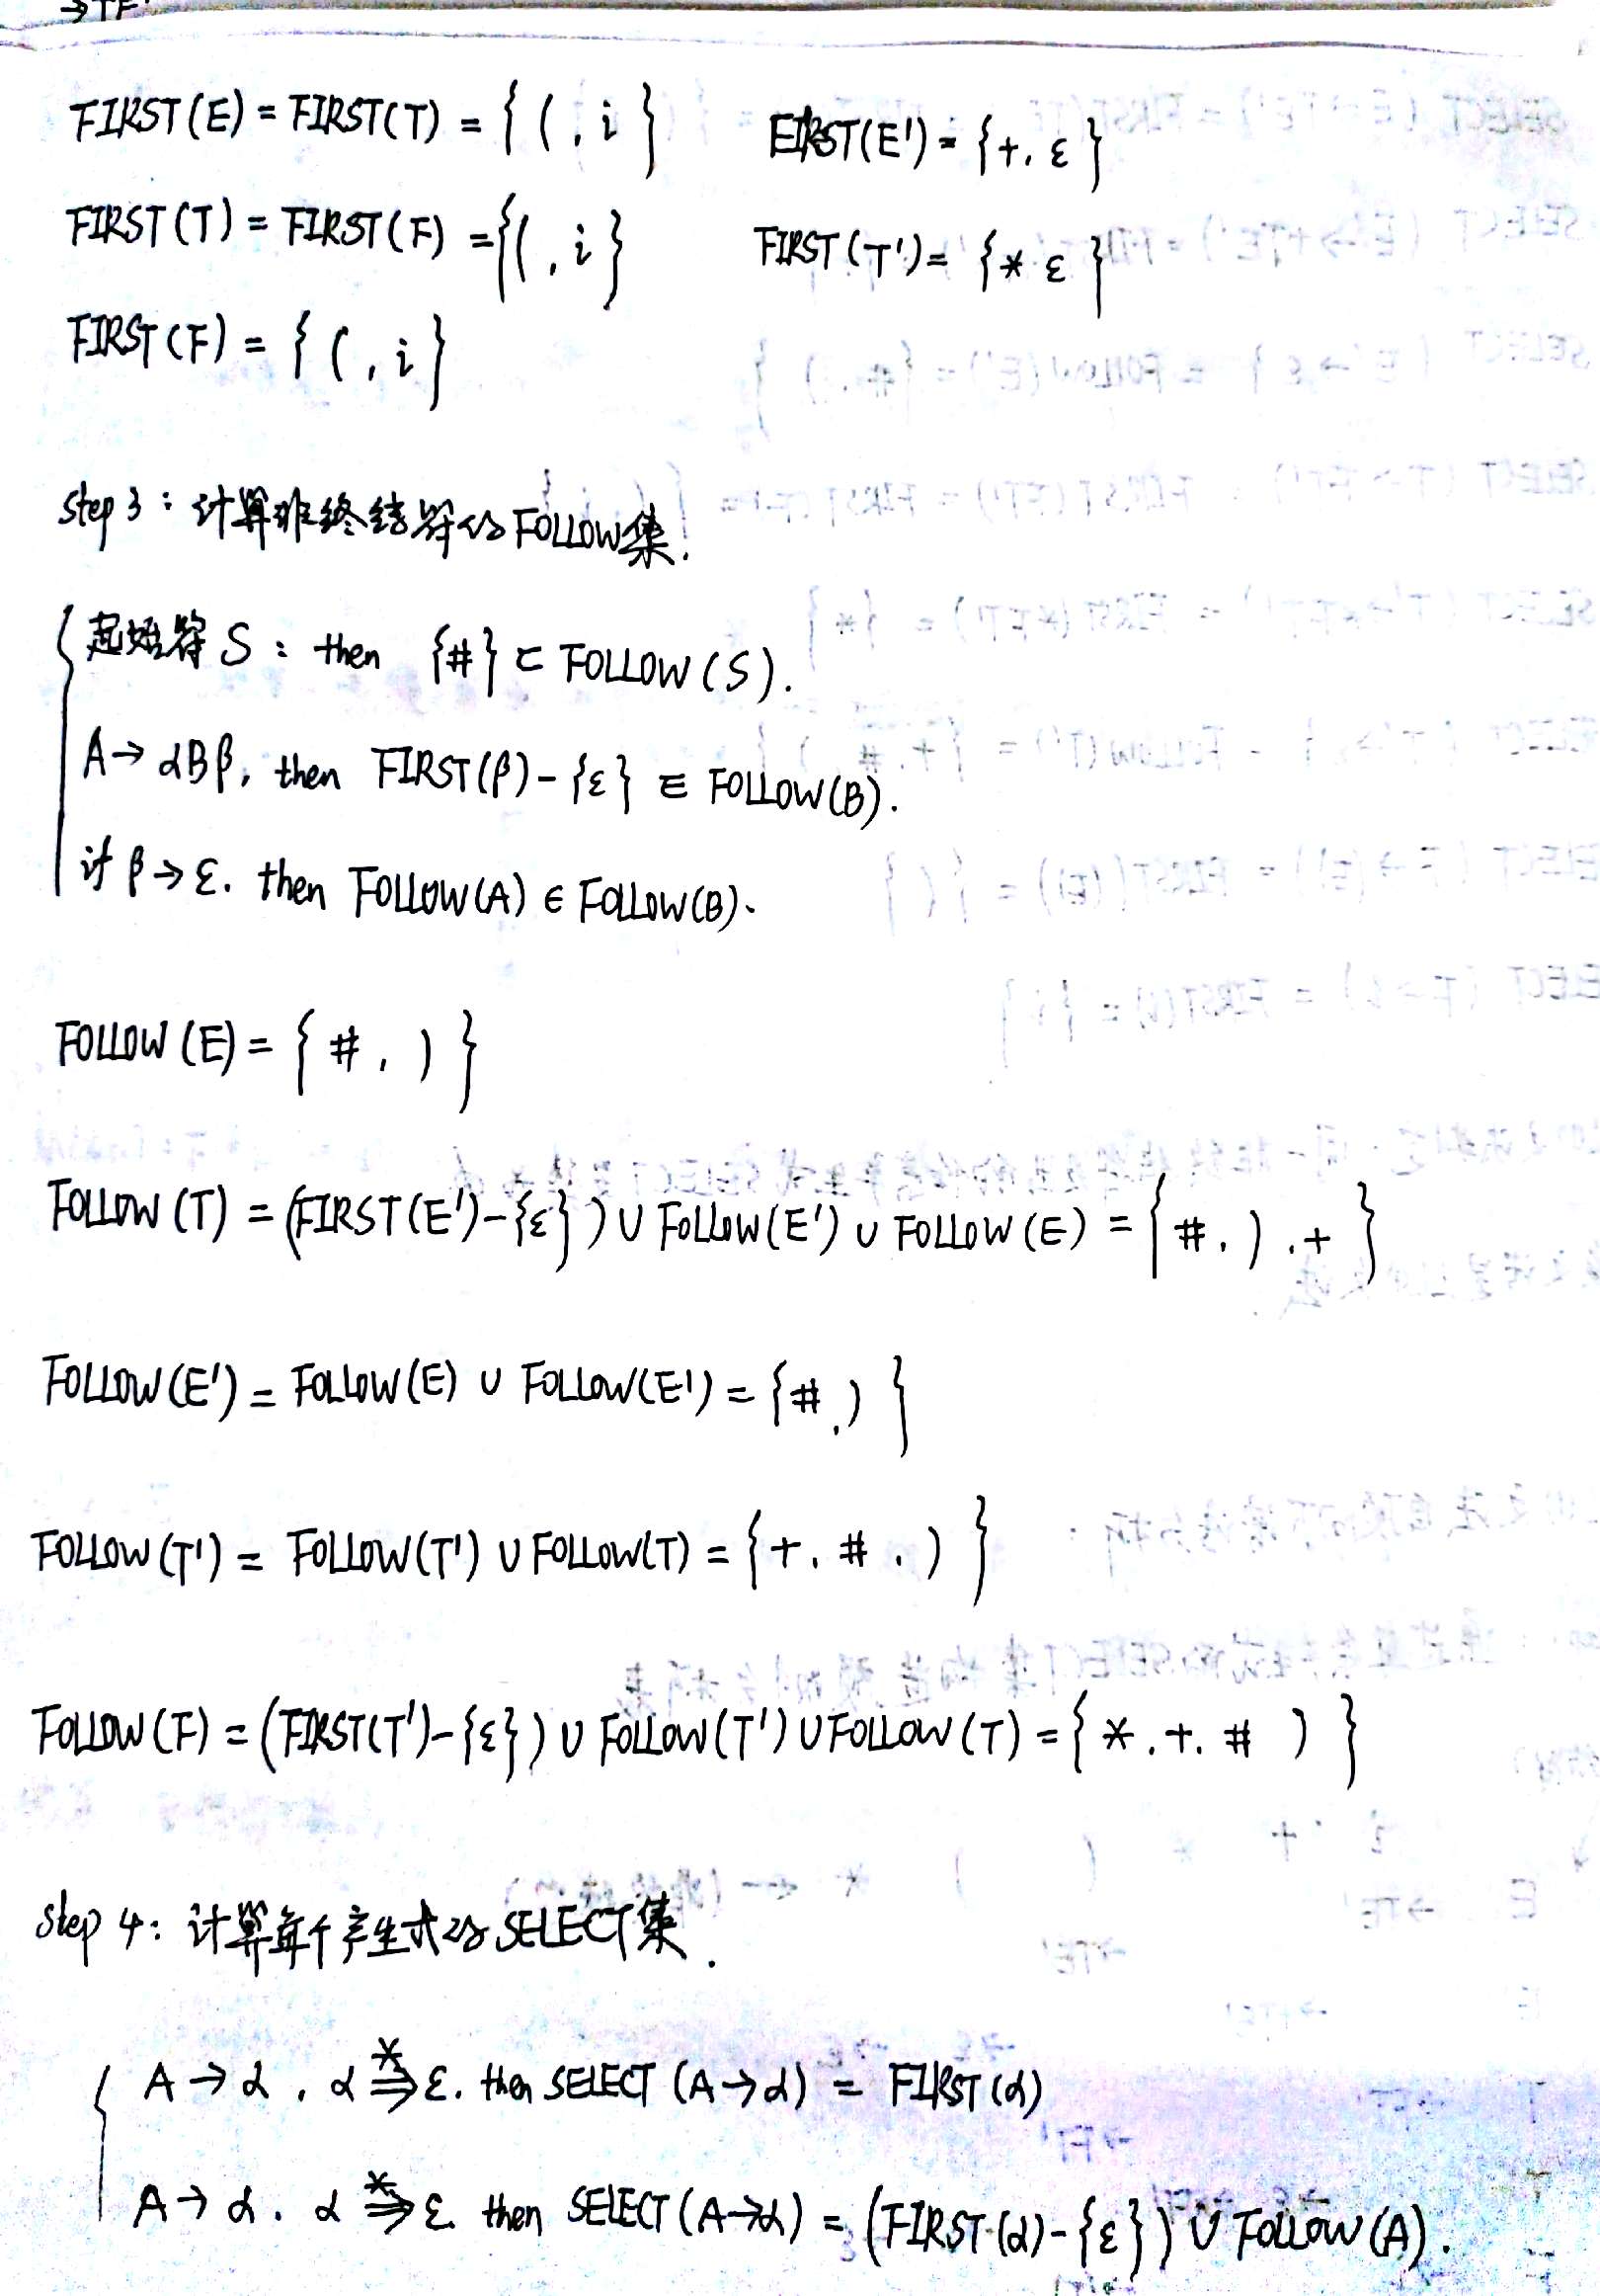 →TE'
FIRST(E) = FIRST(T) = { ( , i } FIRST(E') = {+, ε }
FIRST(T) = FIRST(F) = { ( , i } FIRST(T') = { * ε }
FIRST(F) = { ( , i }
step 3 : 计算非终结符的 FOLLOW集.
起始符 S : then {#} ⊂ FOLLOW(S).
A → αBβ, then FIRST(β) - {ε} ∈ FOLLOW(B).
if β → ε. then FOLLOW(A) ∈ FOLLOW(B).
FOLLOW(E) = { # , ) }
FOLLOW(T) = (FIRST(E') - {ε}) ∪ FOLLOW(E') ∪ FOLLOW(E) = { # , ) , + }
FOLLOW(E') = FOLLOW(E) ∪ FOLLOW(E') = {# , ) }
FOLLOW(T') = FOLLOW(T') ∪ FOLLOW(T) = { + , # , ) }
FOLLOW(F) = (FIRST(T') - {ε}) ∪ FOLLOW(T') ∪ FOLLOW(T) = { * , + , # ) }
step 4: 计算每个产生式的 SELECT集.
A → α , α *⇒ ε. then SELECT (A→α) = FIRST(α)
A → α . α *⇒ ε. then SELECT (A→α) = (FIRST(α) - {ε}) ∪ FOLLOW(A).